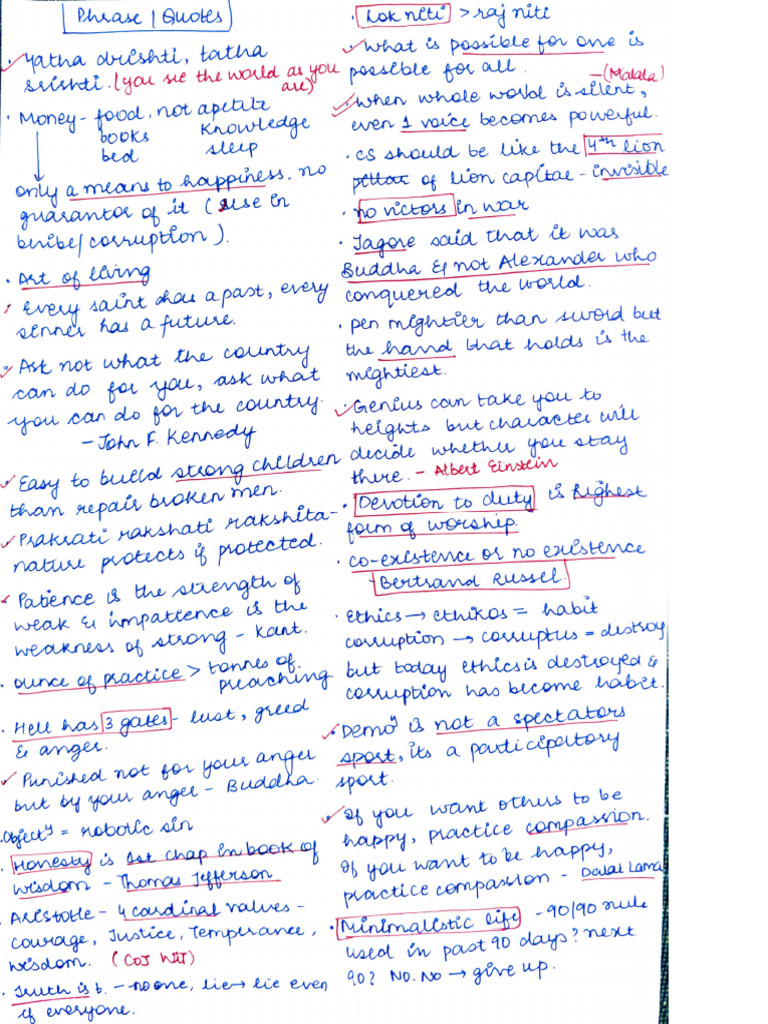 Phrase | Quotes
Yatha drishti, tatha
srishti. (you see the world as you
are)
Money - food, not apetite
books knowledge
bed sleep
only a means to happiness. no
guarantor of it (use in
bribe/corruption).
Art of living
Every saint has a past, every
sinner has a future.
Ask not what the country
can do for you, ask what
you can do for the country.
- John F. Kennedy
Easy to build strong children
than repair broken men.
Prakrati rakshati rakshita -
nature protects if protected.
Patience is the strength of
weak & impatience is the
weakness of strong - Kant.
ounce of practice > tonnes of
preaching
Hell has 3 gates - lust, greed
& anger.
Punished not for your anger
but by your anger - Buddha.
Objecty = robotic sin
Honesty is 1st chap in book of
wisdom - Thomas Jefferson
Aristotle - 4 cardinal values -
courage, Justice, Temperance,
wisdom. (COJ WIT)
Truth is t. - no one, lie → lie even
if everyone.
Lok niti > raj niti
what is possible for one is
possible for all.
- (Malala)
when whole world is silent,
even 1 voice becomes powerful.
CS should be like the 4th lion
pillar of lion capital - invisible
no victors in war
Tagore said that it was
Buddha & not Alexander who
conquered the world.
pen mightier than sword but
the hand that holds is the
mightiest.
Genius can take you to
heights but character will
decide whether you stay
there. - Albert Einstein
Devotion to duty is highest
form of worship.
co-existence or no existence
- Bertrand Russel.
Ethics → ethikos = habit
corruption → corruptus = destroy
but today ethics is destroyed &
corruption has become habit.
Demoy is not a spectators
sport, its a participatory
sport.
If you want others to be
happy, practice compassion.
If you want to be happy,
practice compassion - Dalai Lama
Minimalistic life - 90/90 rule
used in past 90 days? next
90? No. No → give up.